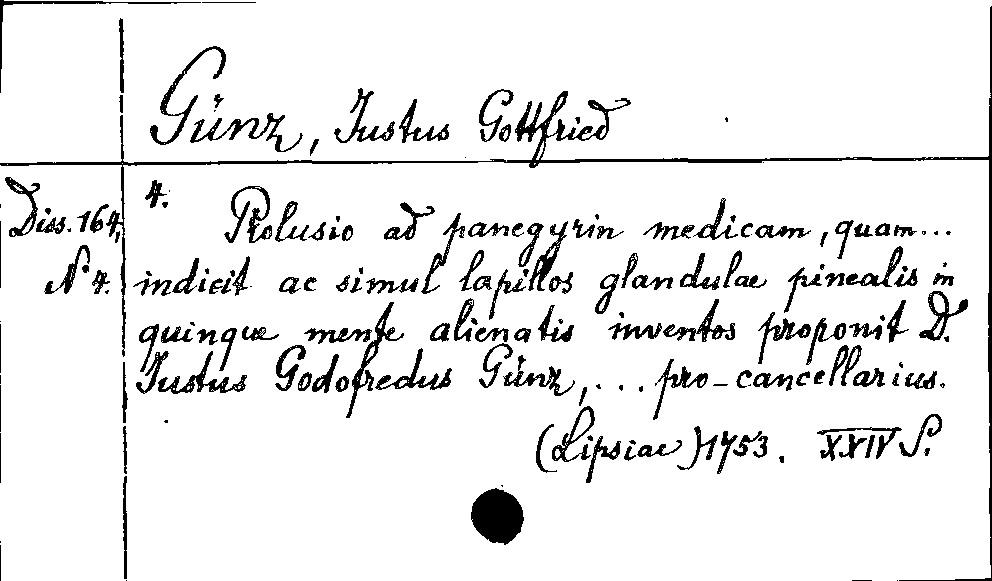 Günz, Justus Gottfried
Diss. 164,
N. 4.
4.
Prolusio ad panegyrin medicam, quam...
indicit ac simul lapillos glandulae pinealis in
quinque mente alienatis inventos proponit D.
Justus Godofredus Günz, ... pro-cancellarius.
(Lipsiae) 1753. XXIV S.